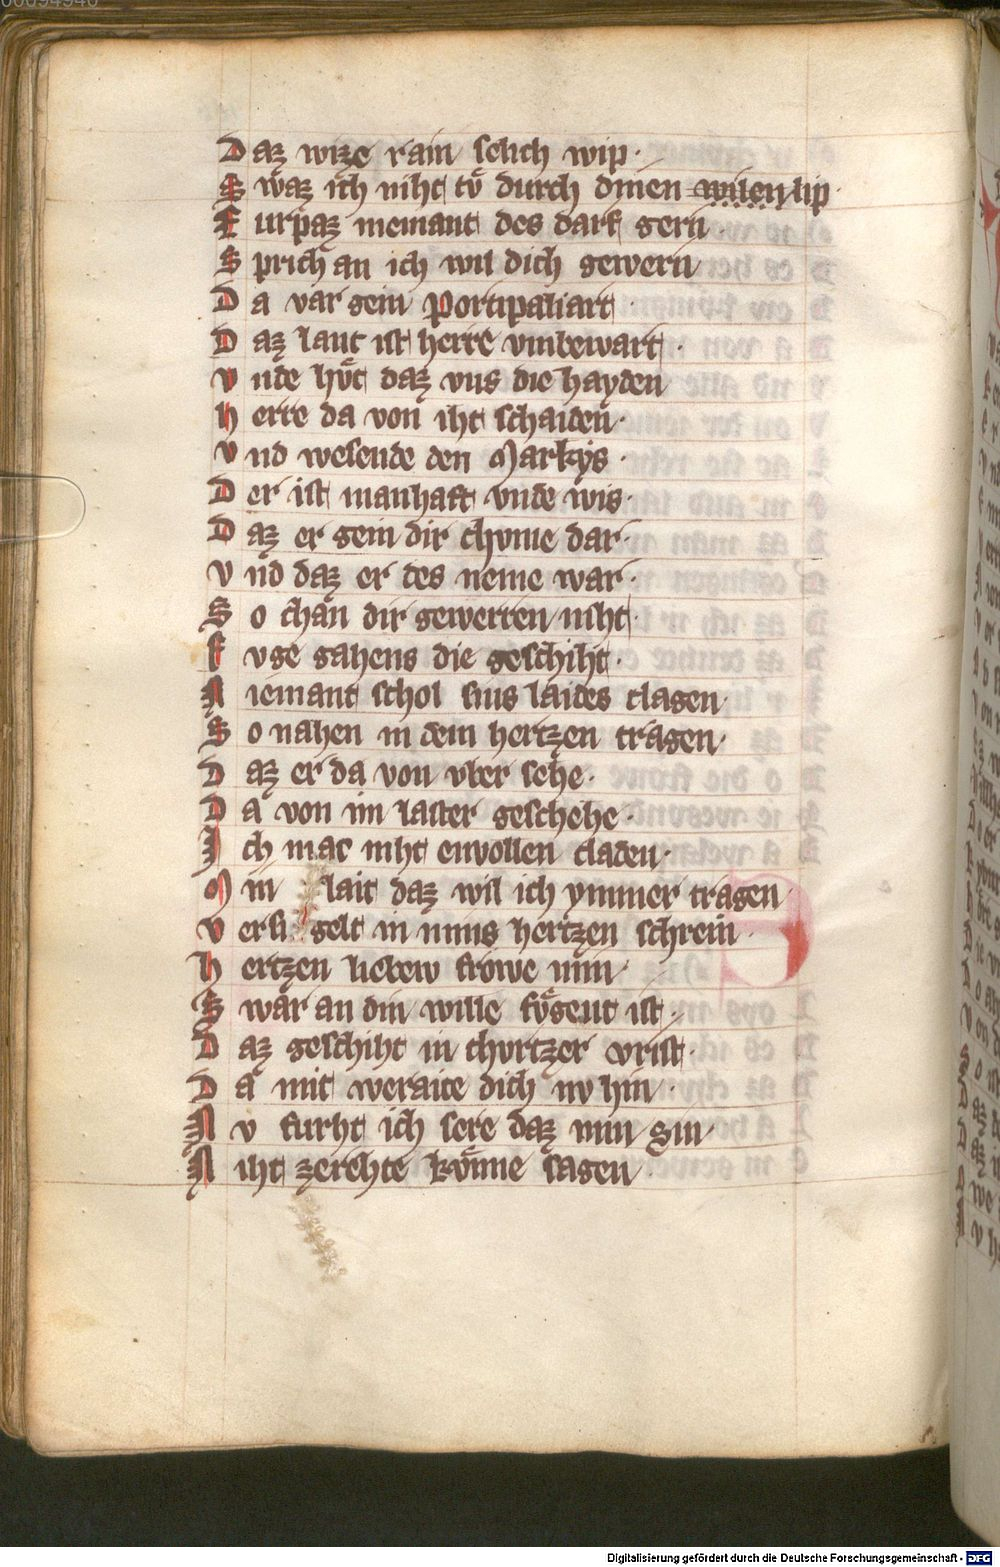 D az wize rain selich wip·
S waz ich niht tv̊ durch dinen willen lip·
F urpaz niemant des darf gern·
S prich an ich wil dich gewern
D a var gein Portipaliart·
D az lant ist herre vnbewart·
v nde hv̊t daz vns die hayden
h erre da von iht schaiden·
v nd wesende den Markys·
D er ist manhaft vnde wis·
D az er gein dir chvme dar·
v nd daz er des neme war·
S o chan dir gewerren niht
f vge gahens die geschiht·
N iemant schol sins laides clagen·
S o nahen in dem hertzen tragen·
D az er da von vber sehe·
D a von im laster geschehe·
I ch mac niht envollen claden·
M in lait daz wil ich ymmer tragen
v ersigelt in mins hertzen schrein·
h ertzen liebew frowe min·
S war an din wille fv̊gent ist·
D az geschiht in chvrtzer vrist·
D a mit weraite dich nv hin·
N v furht ich sere daz min sin·
N iht zerehte kv̊nne sagen·
Digitalisierung gefördert durch die Deutsche Forschungsgemeinschaft - DFG